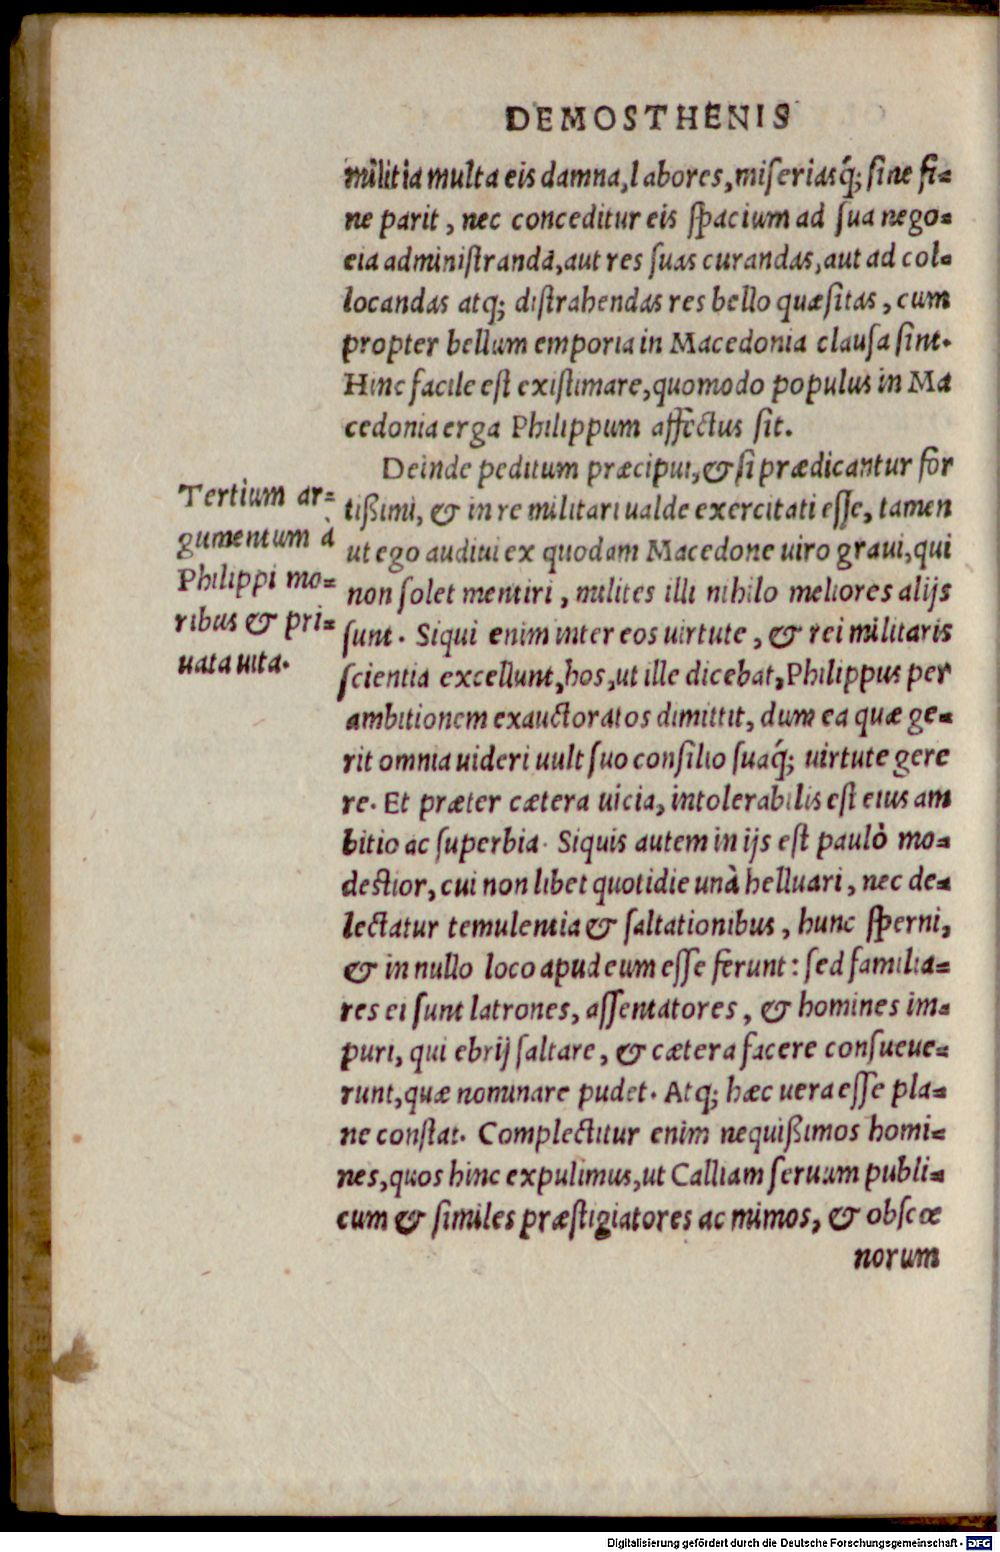 DEMOSTHENIS
militia multa eis damna, labores, miseriasq́; sine fi=
ne parit, nec conceditur eis spacium ad sua nego=
cia administranda, aut res suas curandas, aut ad col=
locandas atq; distrahendas res bello quæsitas, cum
propter bellum emporia in Macedonia clausa sint.
Hinc facile est existimare, quomodo populus in Ma
cedonia erga Philippum affectus sit.
Deinde peditum præcipui, & si prædicantur for
tißimi, & in re militari ualde exercitati esse, tamen
ut ego audiui ex quodam Macedone uiro graui, qui
non solet mentiri, milites illi nihilo meliores alijs
sunt. Siqui enim inter eos uirtute, & rei militaris
scientia excellunt, hos, ut ille dicebat, Philippus per
ambitionem exauctoratos dimittit, dum ea quæ ge=
rit omnia uideri uult suo consilio suaq́; uirtute gere
re. Et præter cætera uicia, intolerabilis est eius am
bitio ac superbia. Siquis autem in ijs est paulò mo=
destior, cui non libet quotidie unà helluari, nec de=
lectatur temulentia & saltationibus, hunc sperni,
& in nullo loco apud eum esse ferunt: sed familia=
res ei sunt latrones, assentatores, & homines im=
puri, qui ebrij saltare, & cætera facere consueue=
runt, quæ nominare pudet. Atq; hæc uera esse pla=
ne constat. Complectitur enim nequißimos homi=
nes, quos hinc expulimus, ut Calliam seruum publi=
cum & similes præstigiatores ac mimos, & obscœ
norum
Tertium ar=
gumentum à
Philippi mo=
ribus & pri=
uata uita.
Digitalisierung gefördert durch die Deutsche Forschungsgemeinschaft - DFG